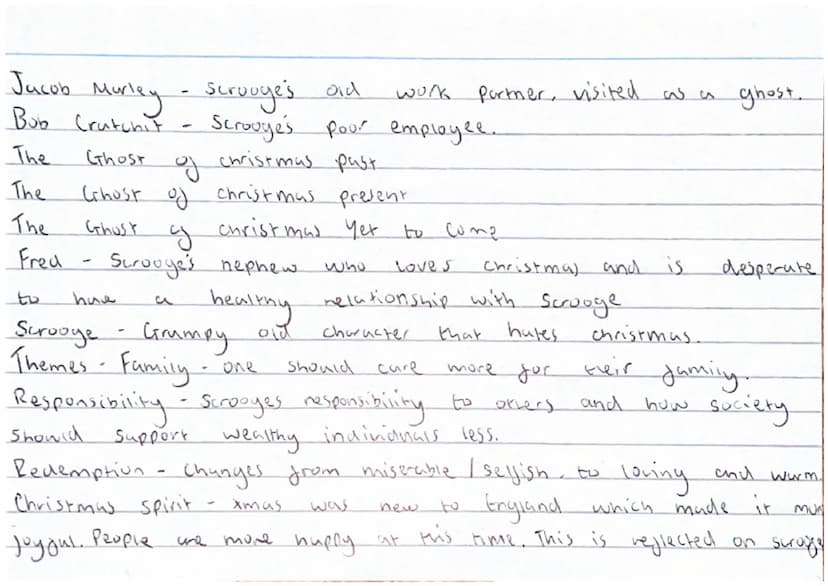 Jacob Marley - Scrooge's old work partner, visited as a ghost.
Bob Cratchit - Scrooge's poor employee.
The Ghost of christmas past
The Ghost of christmas present
The Ghost of christmas Yet to come
Fred - Scrooge's nephew who loves christmas and is desperate
to have a healthy relationship with Scrooge
Scrooge - Grumpy old character that hates christmas.
Themes - Family - one should care more for their family.
Responsibility - Scrooges responsibility to others and how society
should support wealthy individuals less.
Redemption - Changes from miserable / selfish, to loving and warm
Christmas spirit - xmas was new to England which made it
joyful. People are more happy at this time. This is reflected on